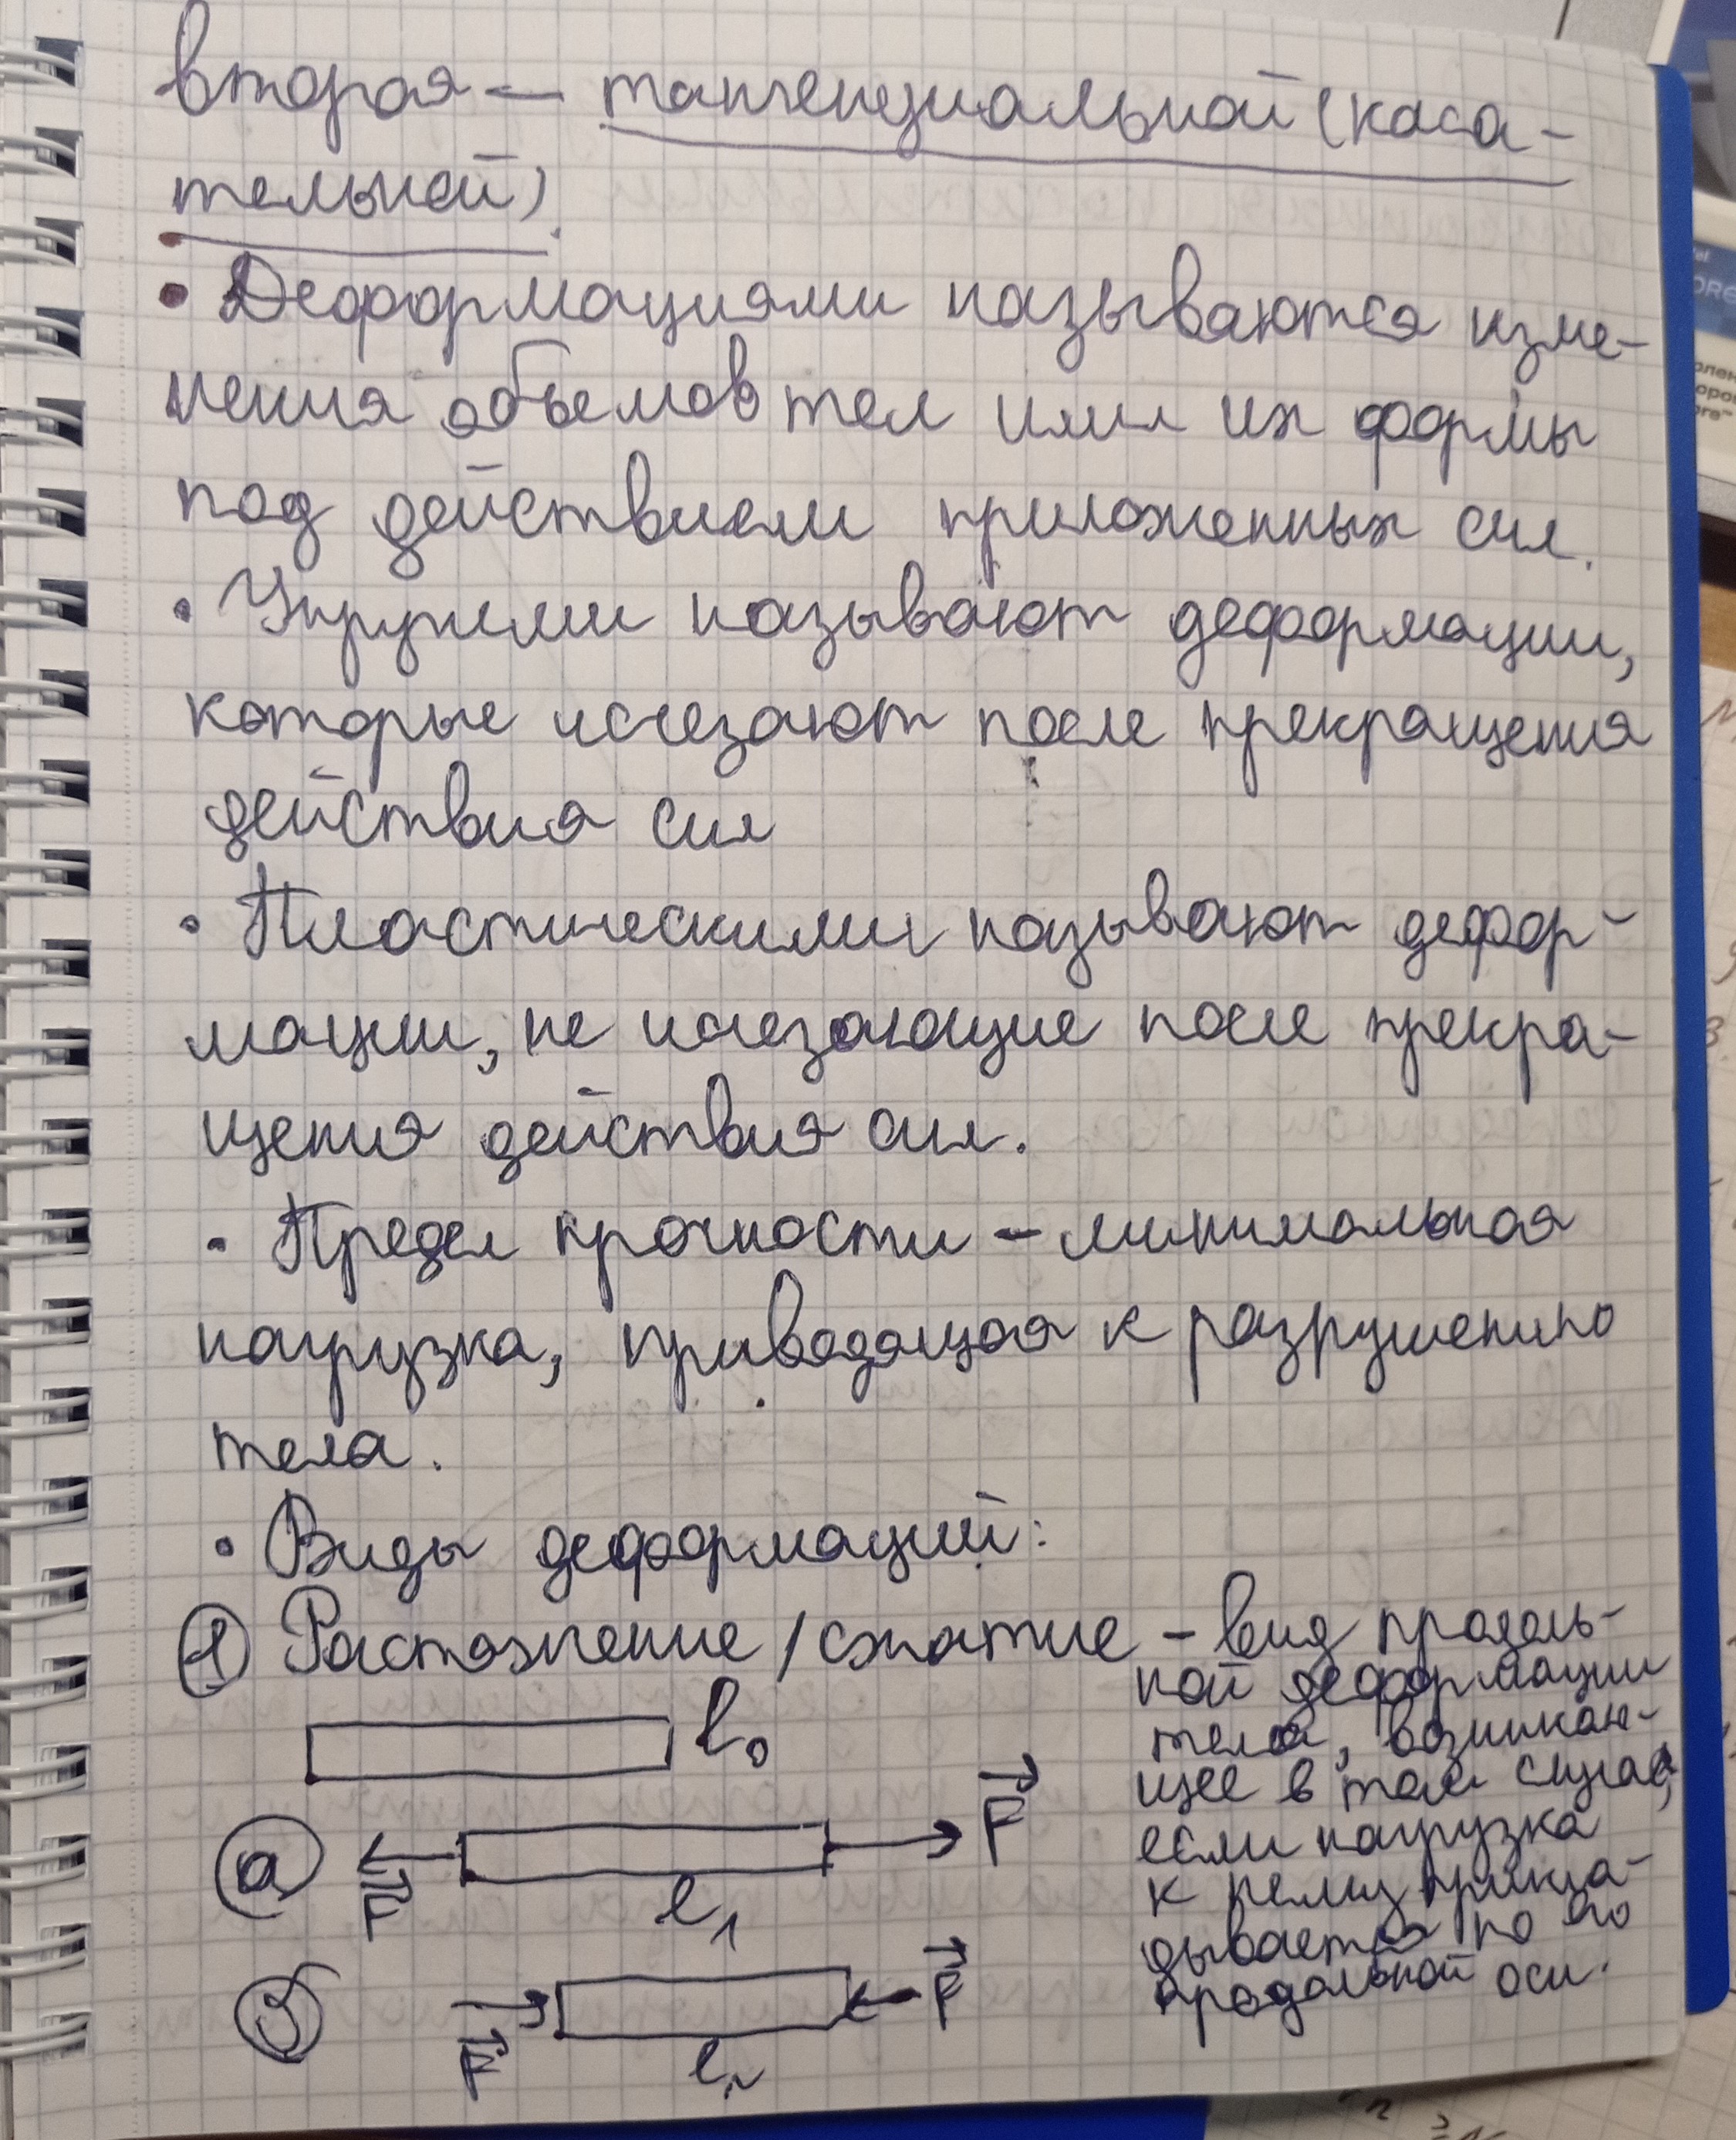 вторая — тангенциальной (каса-
тельной).
• Деформациями называются изме-
нения объемов тел или их формы
под действием приложенных сил.
• Упругими называют деформации,
которые исчезают после прекращения
действия сил
• Пластическими называют дефор-
мации, не исчезающие после прекра-
щения действия сил.
• Предел прочности – минимальная
нагрузка, приводящая к разрушению
тела.
• Виды деформаций:
1 Растяжение / сжатие – вид продоль-
ной деформации
тела, возникаю-
щее в том случае,
если нагрузка
к нему прикла-
дывается по его
продольной оси.
l₀
а F l₁ F
б F l₂ F